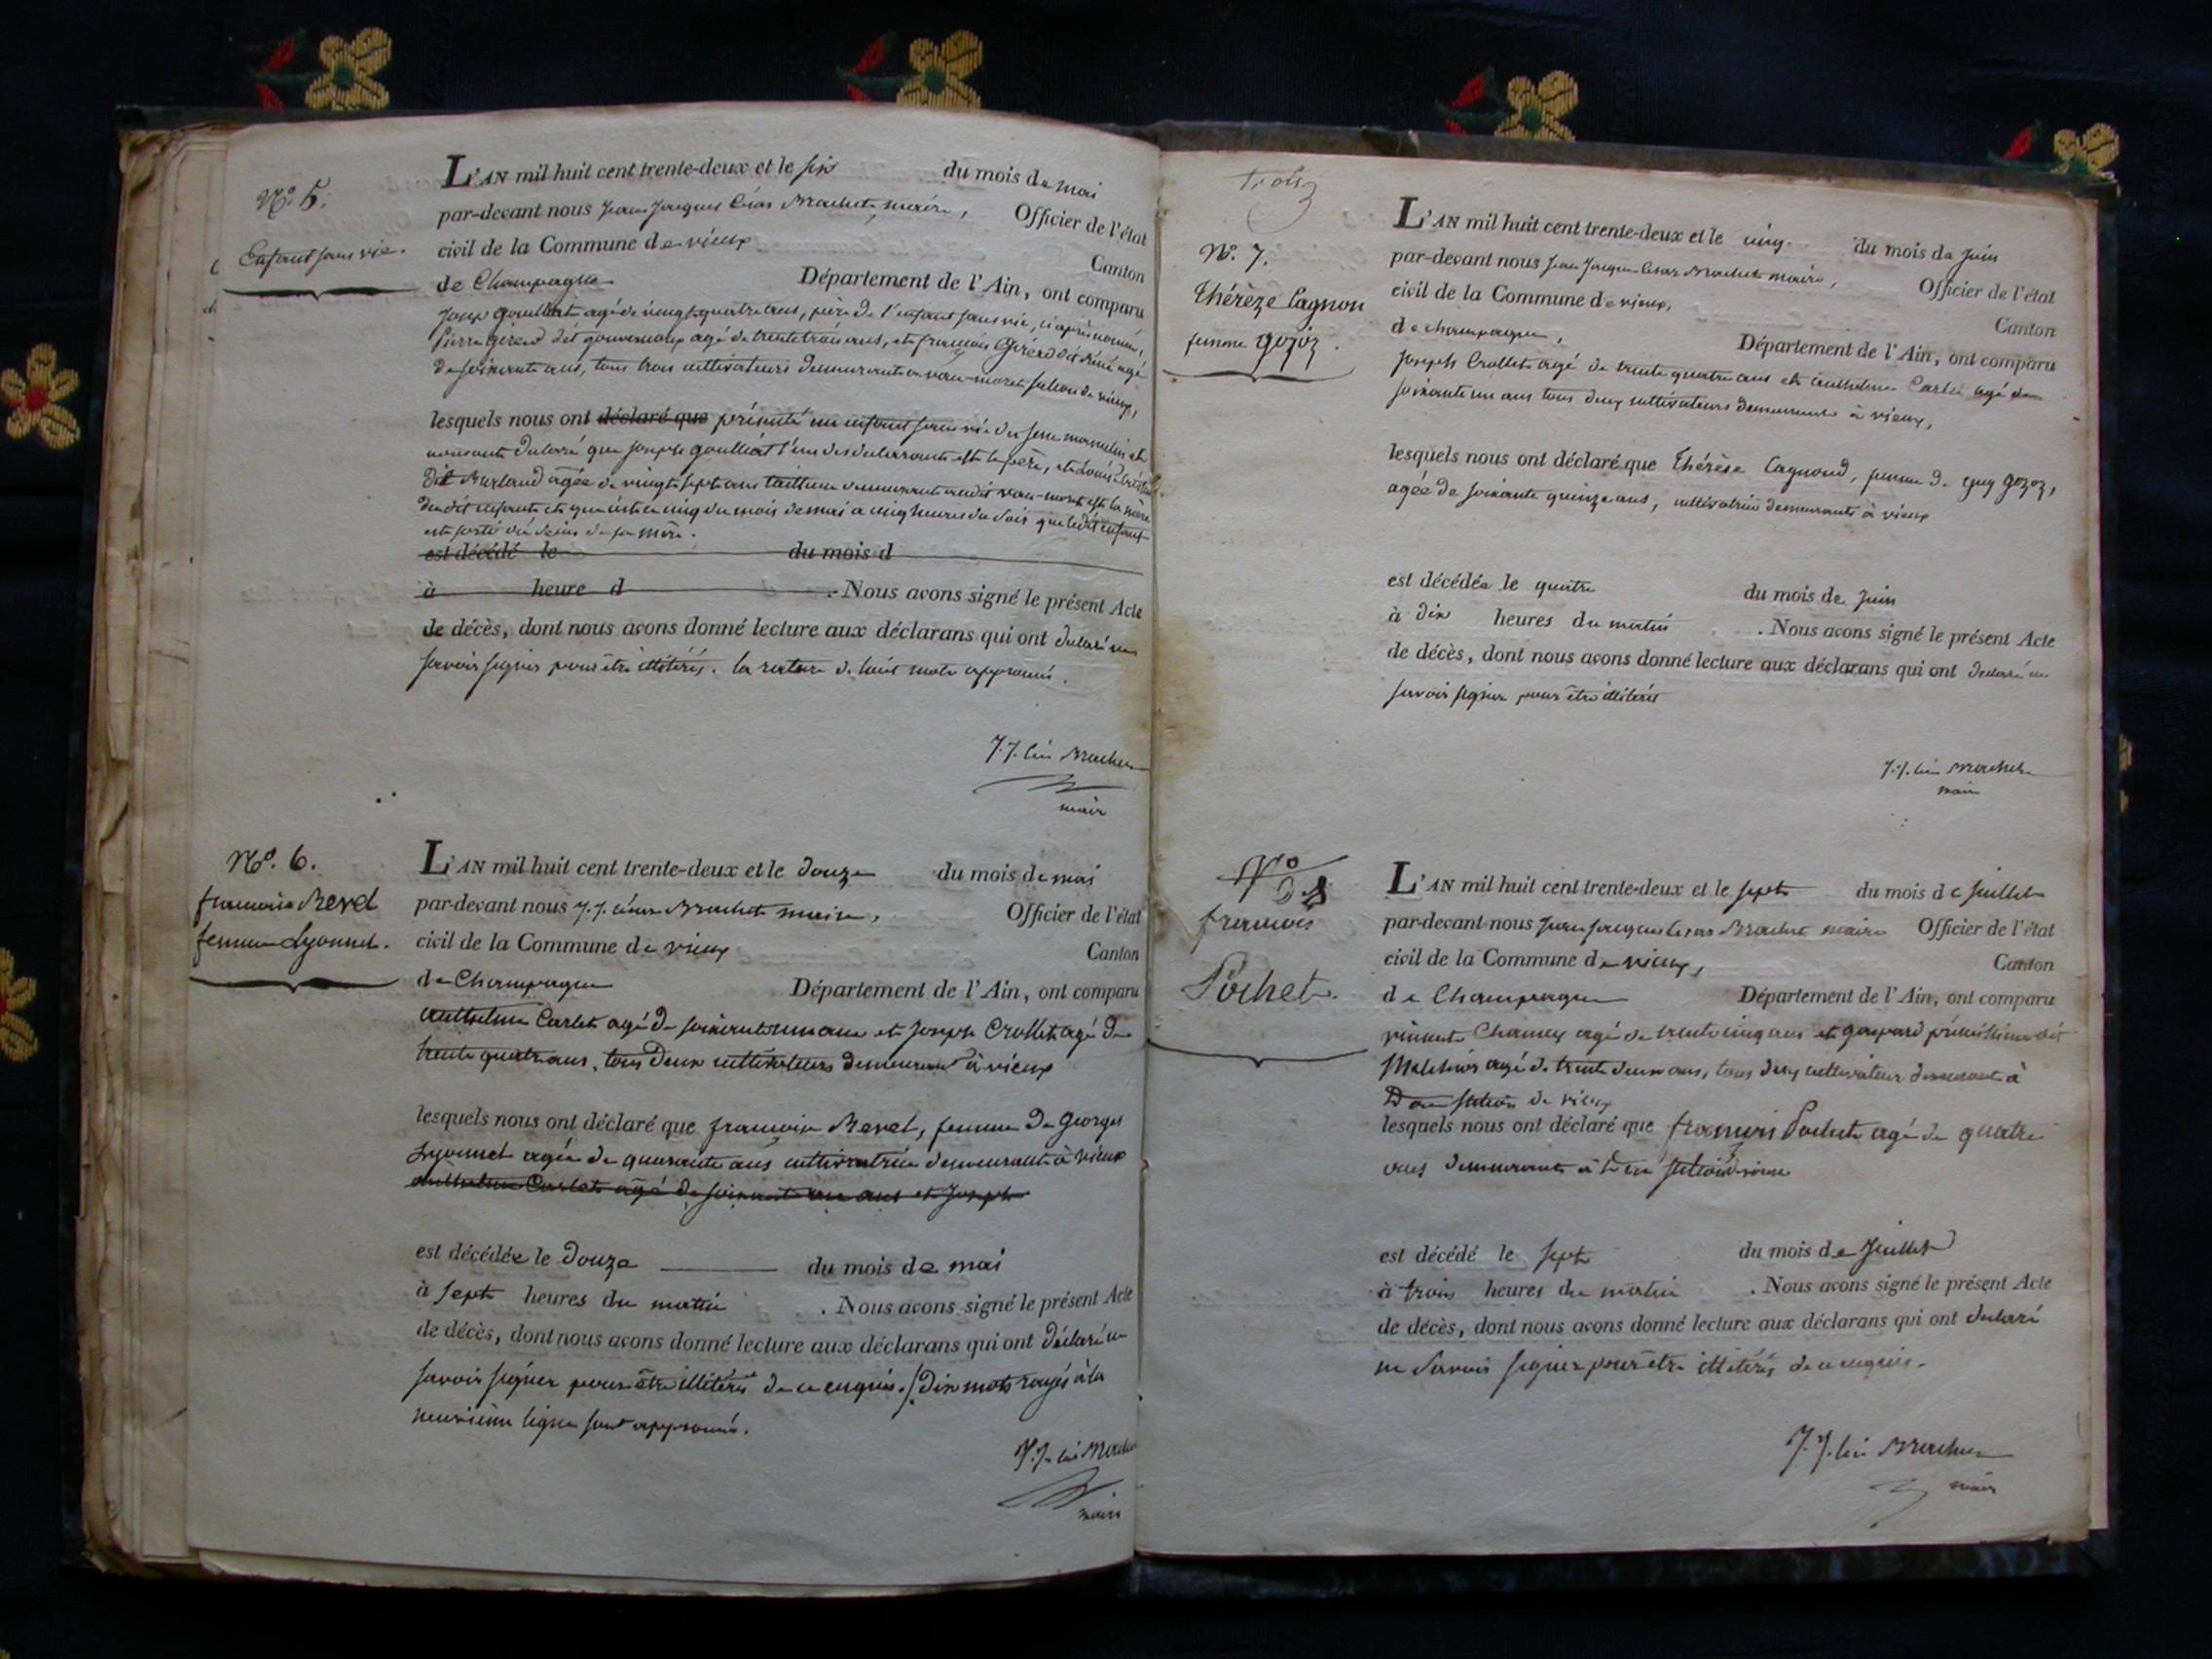 N.º 5.
Enfant sans vie.
L'AN mil huit cent trente-deux et le six du mois de mai
par-devant nous Jean Jacques César Brachet, maire, Officier de l'état
civil de la Commune de vieux Canton
de Champagne Département de l'Ain, ont comparu
agé de vingt quatre ans, père de l'enfant sans vie, ci après nommé,
pierre girerd dit agé de trente trois ans, et françois Girerd dit agé
de soixante ans, tous trois cultivateurs demeurant a vau-moret section de vieux,
lesquels nous ont déclaré que présenté un enfant sans vie du sexe masculin et
nous ont declaré que joseph l'un des declarants est le père, et
dit agée de vingt sept ans demeurant audit vau-moret est la mère
dudit enfant et que c'est le cinq du mois de mai a cinq heures du soir que ledit enfant
est sorti du sein de sa mère.
est décédé le du mois d
à heure d . Nous avons signé le présent Acte
de décès, dont nous avons donné lecture aux déclarans qui ont declaré ne
savoir signer pour être illitérés. la rature de huit mots approuvé.
J. J. César Brachet
maire
N.º 6.
françoise Revel
femme Lyonnet.
L'AN mil huit cent trente-deux et le douze du mois de mai
par-devant nous J. J. César Brachet maire, Officier de l'état
civil de la Commune de vieux Canton
de Champagne Département de l'Ain, ont comparu
Anthelme Carlet agé de soixante un ans et Joseph Crollet agé de
trente quatre ans, tous deux cultivateurs demeurant à vieux
lesquels nous ont déclaré que françoise Revel, femme de Georges
Lyonnet agée de quarante ans cultivatrice demeurant à vieux
Anthelme Carlet agé de soixante un ans et Joseph
est décédée le douze du mois de mai
à sept heures du matin . Nous avons signé le présent Acte
de décès, dont nous avons donné lecture aux déclarans qui ont déclaré ne
savoir signer pour être illitérés de ce enquis. / dix mots rayés à la
neuvième ligne sont approuvés.
J. J. César Brachet
maire
trois
3
N.º 7.
thérèze Cagnon
femme gojoz.
L'AN mil huit cent trente-deux et le cinq du mois de juin
par-devant nous Jean Jacques César Brachet maire, Officier de l'état
civil de la Commune de vieux, Canton
de champagne, Département de l'Ain, ont comparu
joseph Crollet agé de trente quatre ans et anthelme Carlet agé de
soixante un ans tous deux cultivateurs demeurants à vieux,
lesquels nous ont déclaré que thérèse Cagnoud, femme de guy gozoz,
agée de soixante quinze ans, cultivatrice demeurante à vieux
est décédée le quatre du mois de juin
à dix heures du matin . Nous avons signé le présent Acte
de décès, dont nous avons donné lecture aux déclarans qui ont declaré ne
savoir signer pour être illiterés
J. J. César Brachet
maire
N.º 8
françois
Pochet.
L'AN mil huit cent trente-deux et le sept du mois de juillet
par-devant nous Jean Jacques César Brachet maire Officier de l'état
civil de la Commune de vieux, Canton
de Champagne Département de l'Ain, ont comparu
vincent Chamey agé de trente cinq ans et gaspard dit
Melchior agé de trente deux ans, tous deux cultivateurs demeurant à
section de vieux
lesquels nous ont déclaré que françois Pochet agé de quatre
ans demeurant à section de vieux
est décédé le sept du mois de Juillet
à trois heures du matin . Nous avons signé le présent Acte
de décès, dont nous avons donné lecture aux déclarans qui ont declaré
ne savoir signer pour être illitérés de ce enquis.
J. J. César Brachet
maire